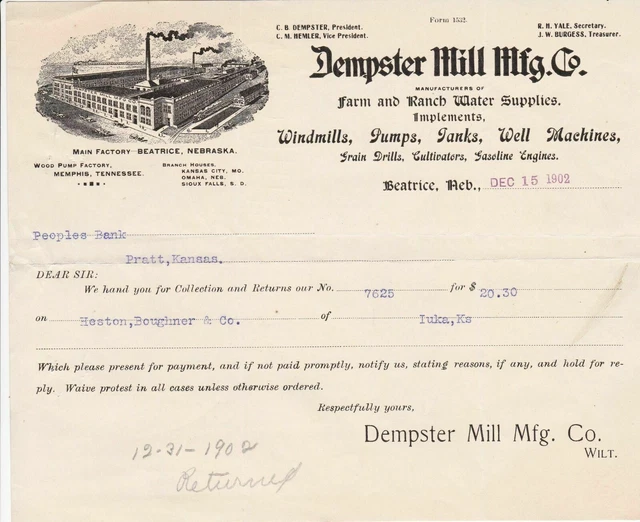 Form 1532.
C. B. DEMPSTER, President.
C. M. HEMLER, Vice President.
R. H. YALE, Secretary.
J. W. BURGESS, Treasurer.
Dempster Mill Mfg. Co.
MANUFACTURERS OF
Farm and Ranch Water Supplies.
Implements,
Windmills, Pumps, Tanks, Well Machines,
Grain Drills, Cultivators, Gasoline Engines.
MAIN FACTORY BEATRICE, NEBRASKA.
WOOD PUMP FACTORY,
MEMPHIS, TENNESSEE.
BRANCH HOUSES,
KANSAS CITY, MO.
OMAHA, NEB.
SIOUX FALLS, S. D.
Beatrice, Neb., DEC 15 1902
Peoples Bank
Pratt,Kansas.
DEAR SIR:
We hand you for Collection and Returns our No. 7625 for $ 20.30
on Heston,Boughner & Co. of Iuka,Ks
Which please present for payment, and if not paid promptly, notify us, stating reasons, if any, and hold for re-
ply. Waive protest in all cases unless otherwise ordered.
Respectfully yours,
Dempster Mill Mfg. Co.
WILT.
12-31-1902
Returned